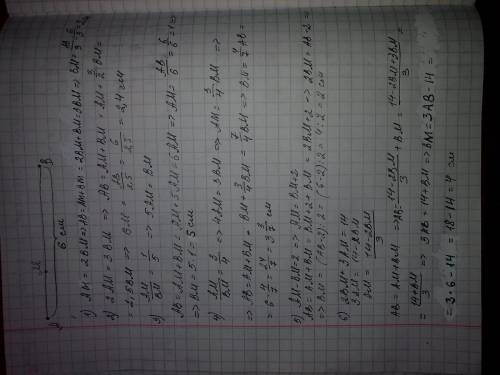 A M B
6 см
1) AM = 2BM ⇒ AB = AM + BM = 2BM + BM = 3BM ⇒ BM = AB/3 = 6/3 = 2 см
2) 2AM = 3BM ⇒ AB = AM + BM = AM + 3/2 BM =
= 2,5BM ⇒ BM = AB/2,5 = 6/2,5 = 2,4 см
3) AM/BM = 1/5 ⇒ 5AM = BM
AB = AM + BM = AM + 5AM = 6AM ⇒ AM = AB/6 = 6/6 = 1 ⇒
⇒ BM = 5·1 = 5 см
4) AM/BM = 3/4 ⇒ 4AM = 3BM ⇒ AM = 3/4 BM ⇒
⇒ AB = AM + BM = BM + 3/4 BM = 7/4 BM ⇒ BM = 4/7 AB =
= 6·4/7 = 24/7 = 3 3/7 см
5) AM - BM = 2 ⇒ AM = BM + 2
AB = AM + BM = BM + 2 + BM = 2BM + 2 ⇒ 2BM = AB - 2 ⇒
⇒ BM = (AB - 2) : 2 = (6 - 2) : 2 = 4 : 2 = 2 см
6) 2BM + 3AM = 14
3AM = 14 - 2BM
AM = 14 - 2BM/3
AB = AM + BM ⇒ AB = 14 - 2BM/3 + BM = 14 - 2BM + 3BM/3 =
= 14 + BM/3 ⇒ 3AB = 14 + BM ⇒ BM = 3AB - 14 =
= 3·6 - 14 = 18 - 14 = 4 см